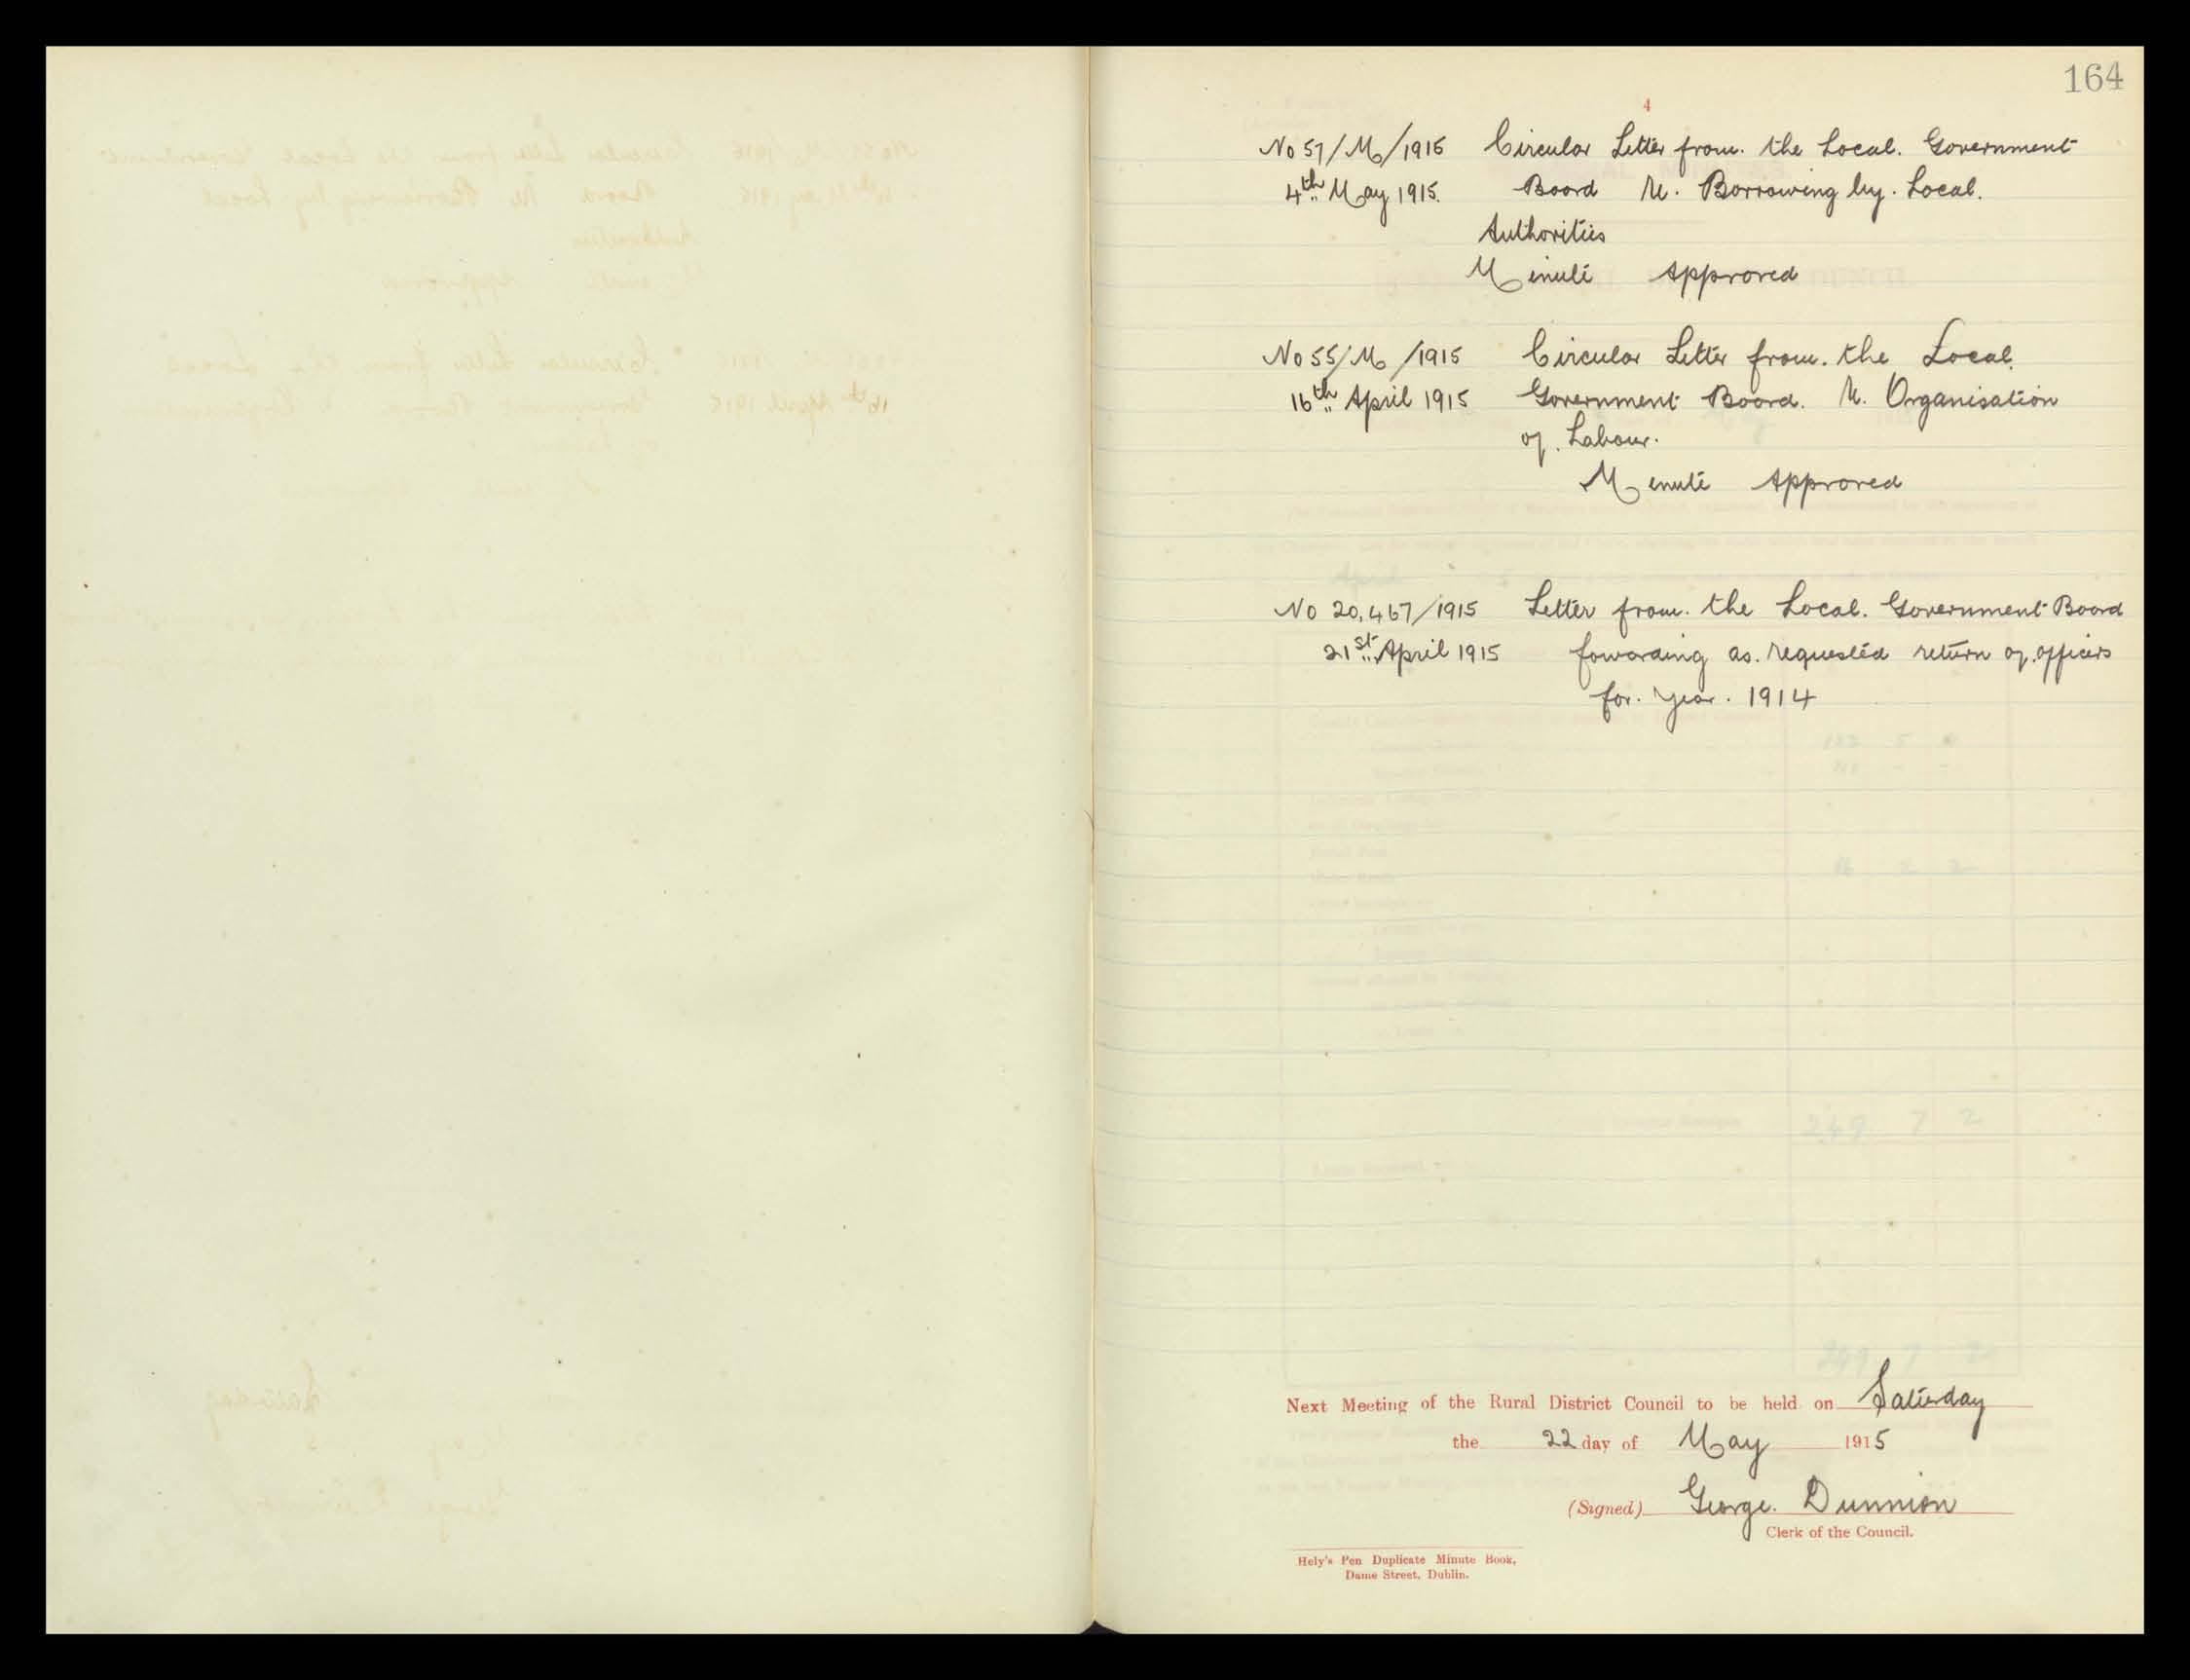 164
4
No 57/M/1915 Circular Letter from. the Local. Government
4th May 1915. Board re. Borrowing by. Local.
Authorities
Minute Approved
No 55/M/1915 Circular Letter from. the Local.
16th April 1915 Government Board. re. Organisation
of. Labour.
Minute Approved
No 20,467/1915 Letter from. the Local. Government Board
21st April 1915 fowarding as. requested return of. officers
for. year. 1914
Next Meeting of the Rural District Council to be held on Saturday
the 22 day of May 1915
(Signed) George. Dunnion
Clerk of the Council.
Hely's Pen Duplicate Minute Book,
Dame Street, Dublin.